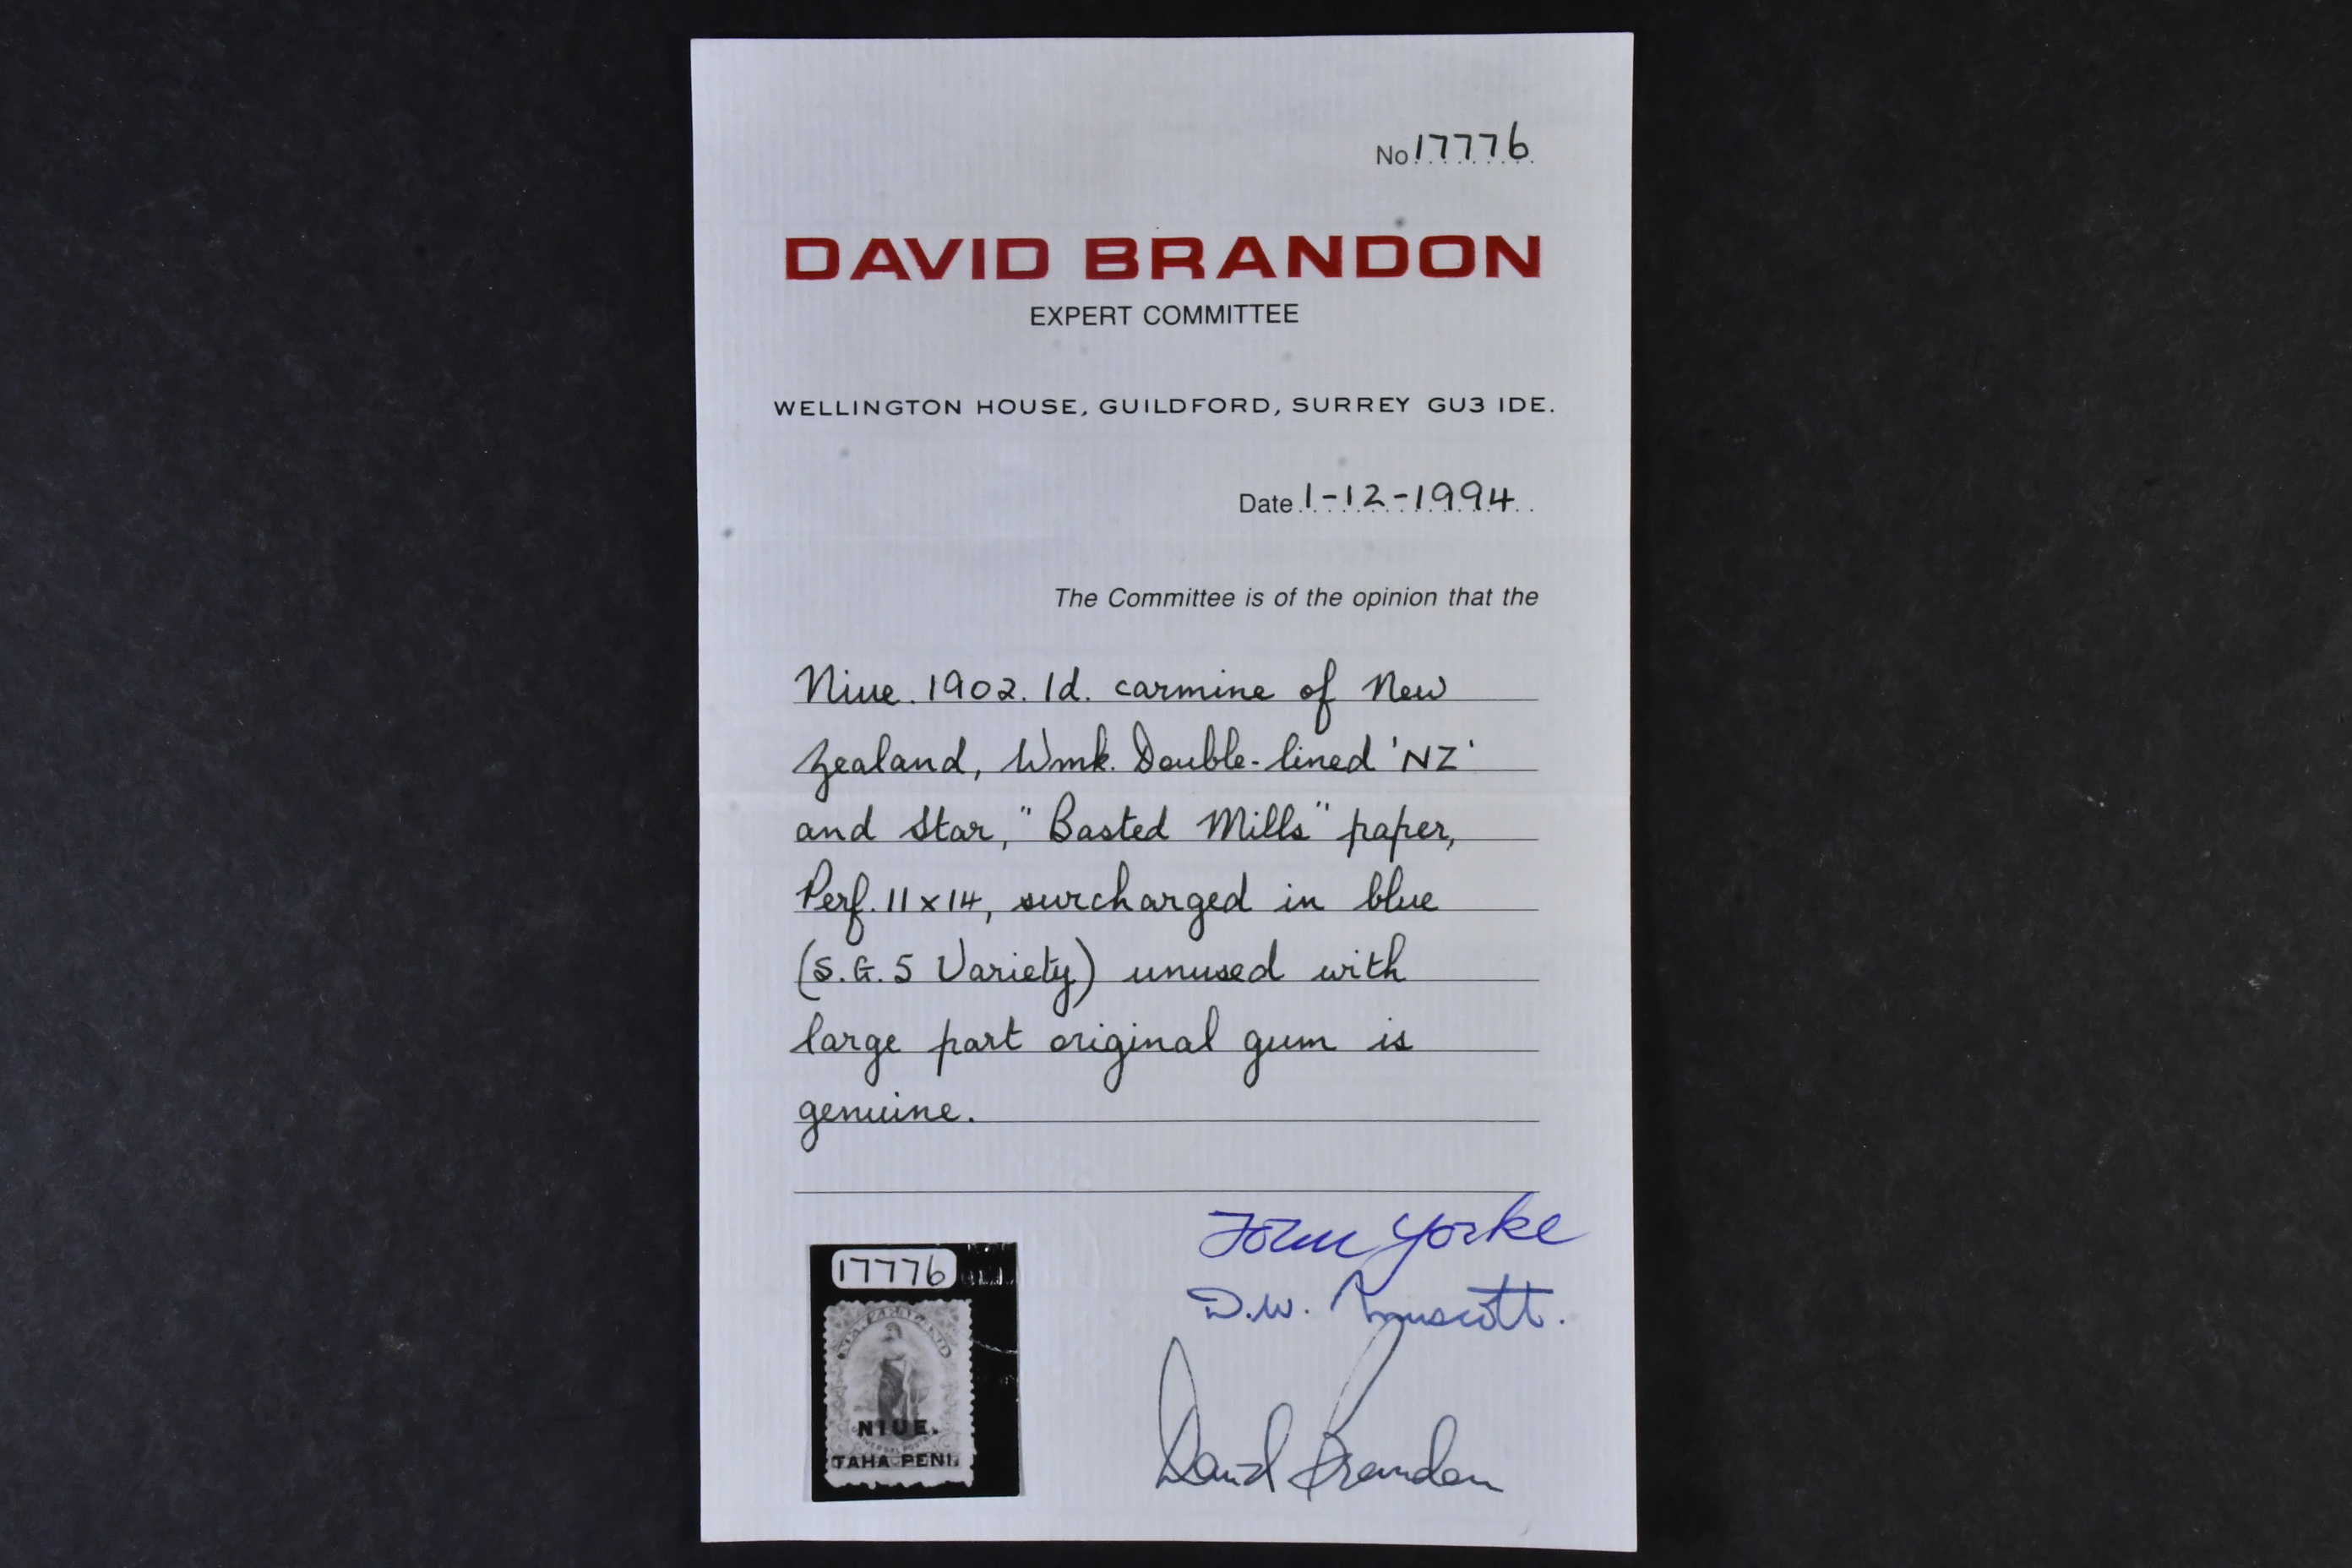 No 17776
DAVID BRANDON
EXPERT COMMITTEE
WELLINGTON HOUSE, GUILDFORD, SURREY GU3 1DE.
Date 1-12-1994
The Committee is of the opinion that the
Niue. 1902. 1d. carmine of New
Zealand, Wmk. Double-lined 'NZ'
and Star, "Basted Mills" paper,
Perf. 11 x 14, surcharged in blue
(S.G. 5 Variety) unused with
large part original gum is
genuine.
John Yorke
D.W.
David Brandon
17776
NIUE.
TAHA PENI.